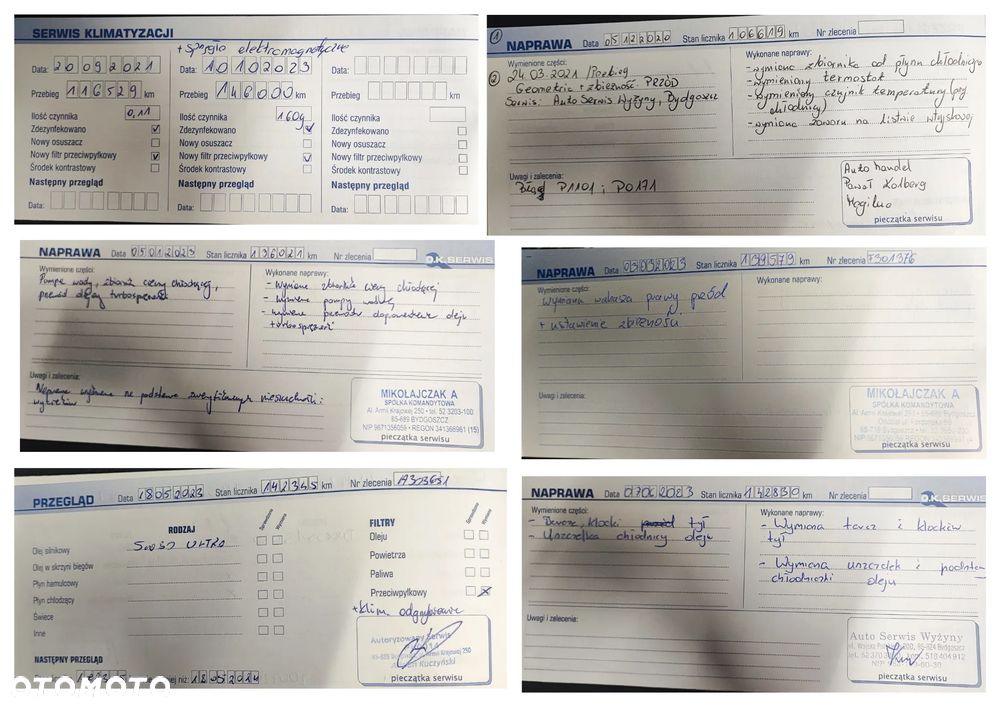 SERWIS KLIMATYZACJI
+ Sprzęgło elektromagnetyczne
Data: 20092021 Data: 10102023 Data:
Przebieg 116529 km Przebieg 146000 km Przebieg km
Ilość czynnika 0,11 Ilość czynnika 160g Ilość czynnika
Zdezynfekowano Zdezynfekowano Zdezynfekowano
Nowy osuszacz Nowy osuszacz Nowy osuszacz
Nowy filtr przeciwpyłkowy Nowy filtr przeciwpyłkowy Nowy filtr przeciwpyłkowy
Środek kontrastowy Środek kontrastowy Środek kontrastowy
Następny przegląd Następny przegląd Następny przegląd
Data: Data: Data:
① NAPRAWA Data 05122020 Stan licznika 106619 km Nr zlecenia
Wymienione części:
② 24.03.2021 / Przebieg
Geometria + zbieżność PRZÓD
Serwis: Auto Serwis Wyżyny, Bydgoszcz
Wykonane naprawy:
- wymiana zbiornika od płynu chłodniczego
- wymieniony termostat
- wymieniony czujnik temperatury (przy chłodnicy)
- wymiana zaworu na listwie wtryskowej
Uwagi i zalecenia:
Błąd P1101 i P0171
Auto handel
Paweł Kolberg
Mogilno
pieczątka serwisu
NAPRAWA Data 05012023 Stan licznika 136021 km Nr zlecenia
O.K. SERWIS
Wymienione części:
Pompa wody, zbiornik cieczy chłodzącej,
przewód olejowy turbosprężarki
Wykonane naprawy:
- Wymiana zbiornika cieczy chłodzącej
- wymiana pompy wody
- wymiana przewodu oleju
turbosprężarki
Uwagi i zalecenia:
Naprawa wykonana na podstawie zweryfikowanych nieszczelności i
wycieków
MIKOŁAJCZAK A
SPÓŁKA KOMANDYTOWA
Al. Armii Krajowej 250 • tel. 52 3203-100
85-689 BYDGOSZCZ
NIP 9671356059 • REGON 341366961 (15)
pieczątka serwisu
NAPRAWA Data 03032023 Stan licznika 139579 km Nr zlecenia F301376
Wymienione części:
Wymiana wahacza prawy przód
+ ustawienie zbieżności
Wykonane naprawy:
Uwagi i zalecenia:
MIKOŁAJCZAK A
SPÓŁKA KOMANDYTOWA
pieczątka serwisu
PRZEGLĄD Data 18052023 Stan licznika 142345 km Nr zlecenia A303651
RODZAJ
Sprawdzono Wymiana
Olej silnikowy 5W30 ULTRA
Olej w skrzyni biegów
Płyn hamulcowy
Płyn chłodzący
Świece
Inne
FILTRY
Sprawdzono Wymiana
Oleju
Powietrza
Paliwa
Przeciwpyłkowy
+ Klim. odgrzybianie
Autoryzowany Serwis
Kuczyński
pieczątka serwisu
NASTĘPNY PRZEGLĄD
niż: 18052024
OTOMOTO
NAPRAWA Data 07062023 Stan licznika 142830 km Nr zlecenia
O.K. SERWIS
Wymienione części:
- Tarcze, klocki tył
- Uszczelka chłodnicy oleju
Wykonane naprawy:
- Wymiana tarcz i klocków
tył
- Wymiana uszczelek i podstaw
chłodniczki oleju
Uwagi i zalecenia:
Auto Serwis Wyżyny
ul. Wojska Polskiego 200, 85-824 Bydgoszcz
pieczątka serwisu